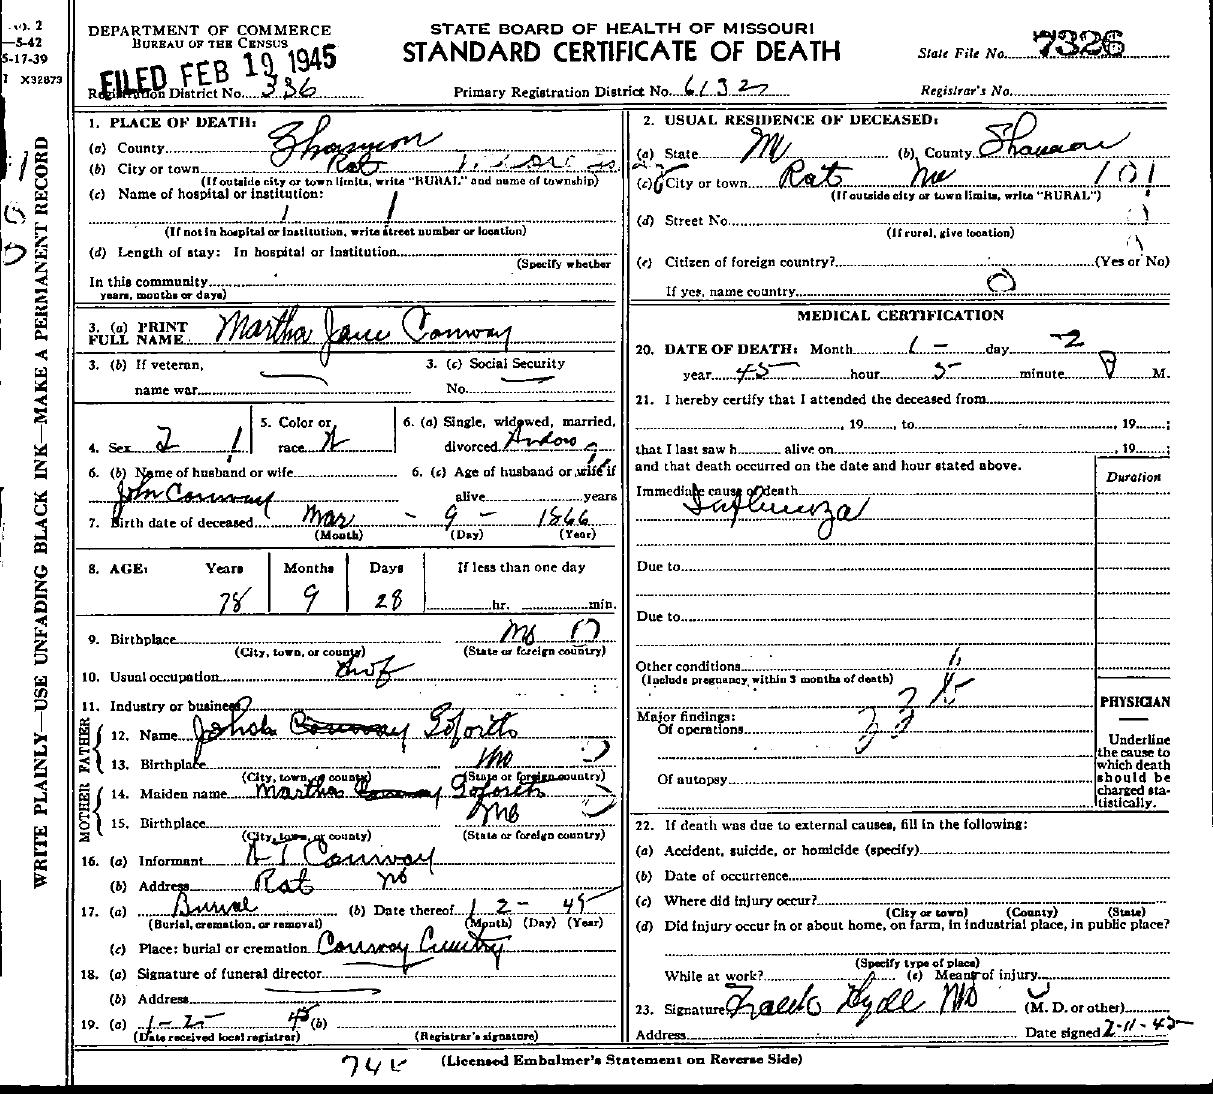 .vo. 2
—5-42
5-17-39
I X32873
WRITE PLAINLY—USE UNFADING BLACK INK—MAKE A PERMANENT RECORD
DEPARTMENT OF COMMERCE
BUREAU OF THE CENSUS
FILED FEB 19 1945
Registration District No. 336
STATE BOARD OF HEALTH OF MISSOURI
STANDARD CERTIFICATE OF DEATH
Primary Registration District No. 6132
State File No. 7326
Registrar's No.
1. PLACE OF DEATH:
(a) County Shannon
(b) City or town Rat
(If outside city or town limits, write "RURAL" and name of township)
(c) Name of hospital or institution:
(If not in hospital or institution, write street number or location)
(d) Length of stay: In hospital or institution
(Specify whether
In this community
years, months or days)
2. USUAL RESIDENCE OF DECEASED:
(a) State M (b) County Shannon
(c) City or town Rat Mo 101
(If outside city or town limits, write "RURAL")
(d) Street No.
(If rural, give location)
(e) Citizen of foreign country? (Yes or No)
If yes, name country 0
3. (a) PRINT
FULL NAME Martha Jane Conway
3. (b) If veteran,
name war
3. (c) Social Security
No.
4. Sex
5. Color or
race W
6. (a) Single, widowed, married,
divorced
6. (b) Name of husband or wife
John Conway
6. (c) Age of husband or wife if
alive years
7. Birth date of deceased Mar - 9 - 1866
(Month) (Day) (Year)
8. AGE: Years Months Days If less than one day
78 9 28 hr. min.
9. Birthplace Mo
(City, town, or county) (State or foreign country)
10. Usual occupation
11. Industry or business
FATHER
12. Name Conway Goforth
13. Birthplace Mo
(City, town, or county) (State or foreign country)
MOTHER
14. Maiden name Martha Conway Goforth
15. Birthplace Mo
(City, town, or county) (State or foreign country)
16. (a) Informant Conway
(b) Address Rat Mo
17. (a) Burial (b) Date thereof 1 2 - 45
(Burial, cremation, or removal) (Month) (Day) (Year)
(c) Place: burial or cremation Conway Cemetry
18. (a) Signature of funeral director
(b) Address
19. (a) 1-2- 45 (b)
(Date received local registrar) (Registrar's signature)
MEDICAL CERTIFICATION
20. DATE OF DEATH: Month 1 - day 2
year 45 hour 5 minute P M.
21. I hereby certify that I attended the deceased from
, 19 , to , 19 ;
that I last saw h alive on , 19 ;
and that death occurred on the date and hour stated above.
Duration
Immediate cause of death
Influenza
Due to
Due to
Other conditions
(Include pregnancy within 3 months of death)
Major findings:
Of operations
Of autopsy
PHYSICIAN
Underline
the cause to
which death
should be
charged sta-
tistically.
22. If death was due to external causes, fill in the following:
(a) Accident, suicide, or homicide (specify)
(b) Date of occurrence
(c) Where did injury occur?
(City or town) (County) (State)
(d) Did injury occur in or about home, on farm, in industrial place, in public place?
(Specify type of place)
While at work? (e) Means of injury
23. Signature Hyde MD (M. D. or other)
Address Date signed 2-11-45
(Licensed Embalmer's Statement on Reverse Side)